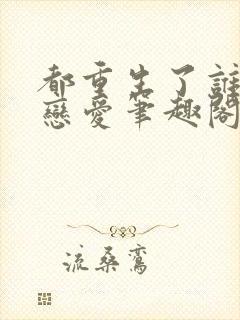 都重生了誰
戀愛筆趣閣
流桑鸞